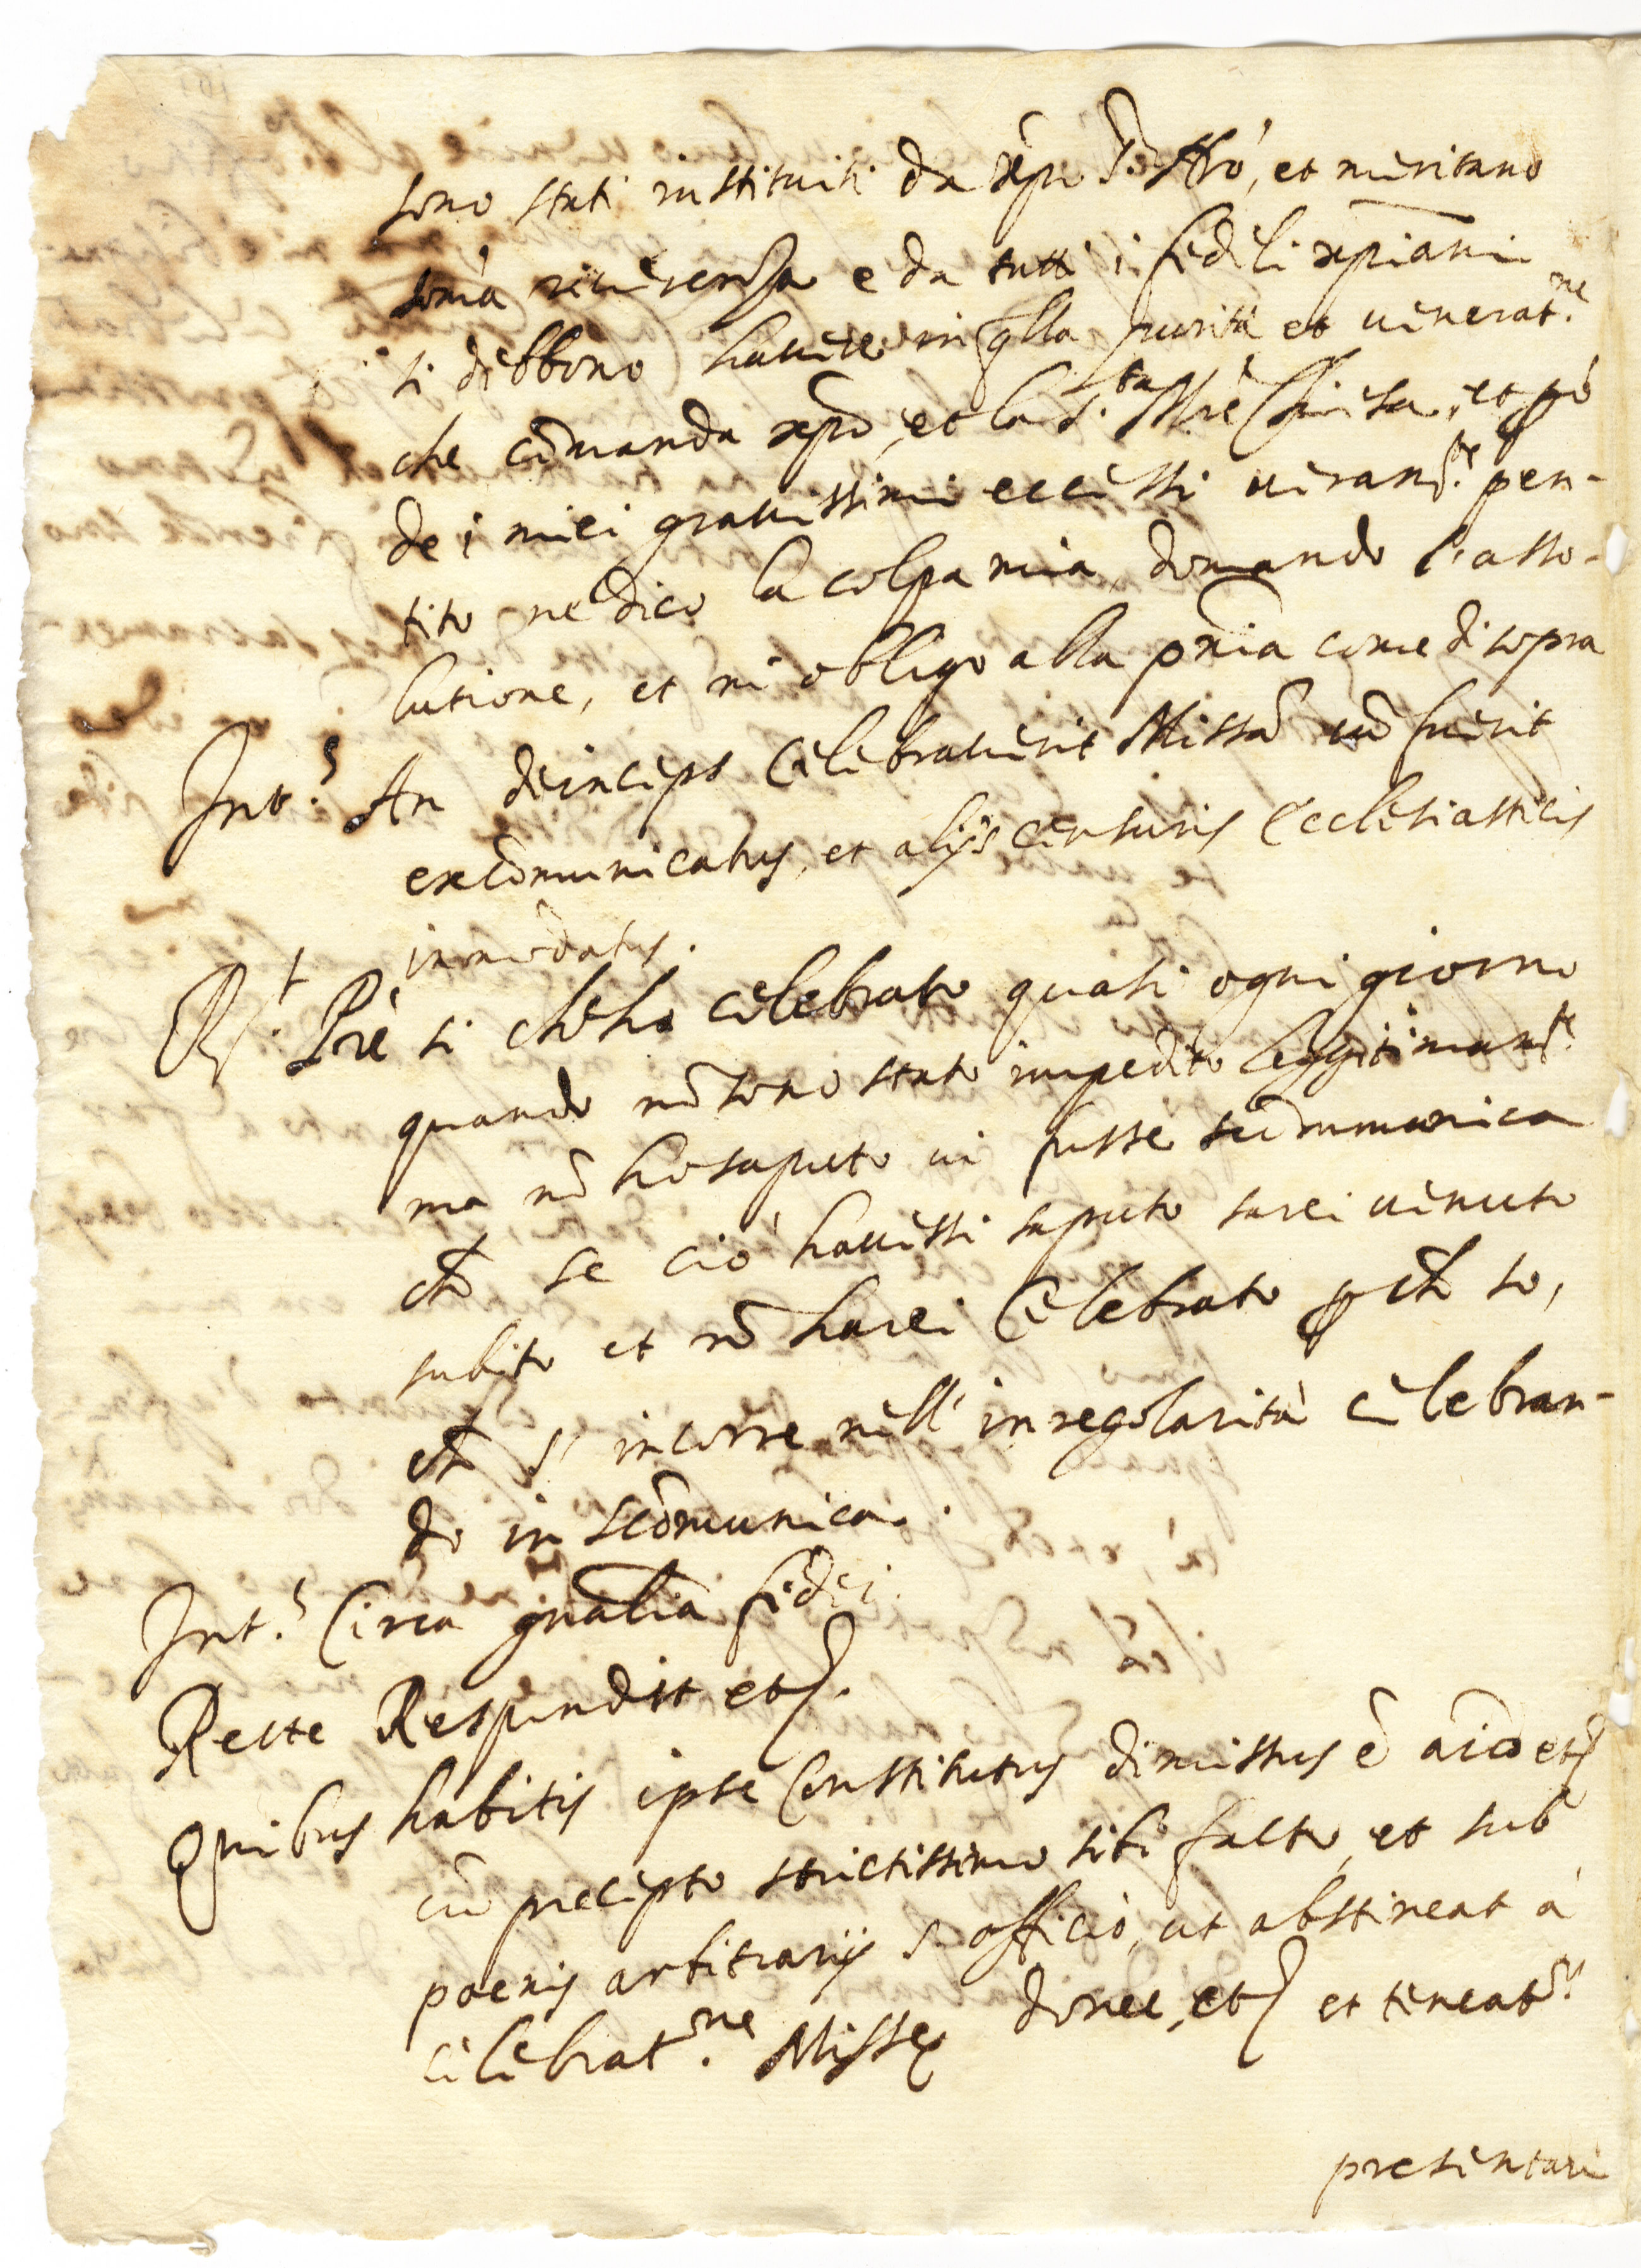 sono stati instituiti da xpo S.r Nrõ, et meritano
somã riuerenza e da tutti i fedeli xpiani
si debbono hauere in qlla purità et uenerat.ne
che cõmanda xpõ, et la S.ta Mrẽ Chiesa, et però
de i miei grauissimi eccessi ueram.te pen-
tito ne dico la colpa mia, domando l'asso-
lutione, et mi obligo alla pñia come di sopra
Int.s An deinceps celebrauerit Missã cũ fuerit
excõmunicatus, et alijs censuris Ecclesiasticis
innodatus.
R.t Prẽ si che hò celebrato quasi ogni giorno
quando nõ sono stato impedito leggitimam.te
ma nõ ho saputo ui fusse scõmmunica
chẽ se ciò hauessi saputo sarei uenuto
subito et nõ harei celebrato p chẽ so,
chẽ s' incorre nell' inregolarità celebran-
do in scõmunica.
Int.s Circa gñalia fidei.
Recte Respondit etc.
Quibus habitis ipse Constitutus dimissus ẽ aĩo etc
cũ precepto strictissimo sibi facto, et sub
poenis arbitrarijs S. officio, ut abstineat à
celebrat.ne Misse donec, etc et teneat.r
presentare